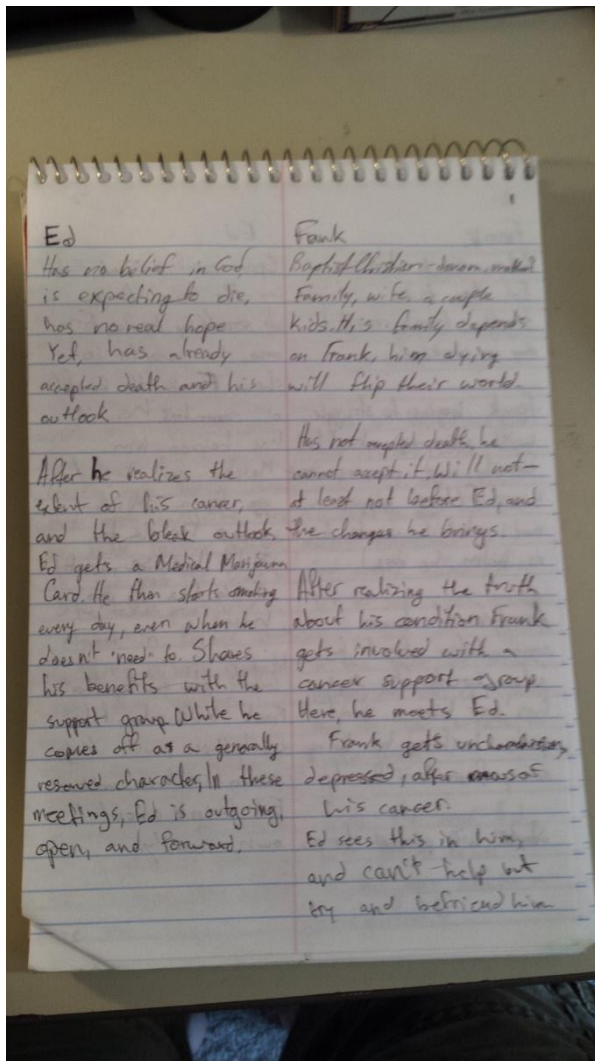 Ed
Has no belief in God,
is expecting to die,
has no real hope
Yet, has already
accepted death and his
outlook
After he realizes the
extent of his cancer,
and the bleak outlook,
Ed gets a Medical Marijuana
Card. He then starts smoking
every day, even when he
doesn't "need" to. Shares
his benefits with the
support group. While he
comes off as a generally
reserved character, In these
meetings, Ed is outgoing,
open, and forward.
Frank
Baptist Christian -
Family, wife, a couple
kids. His family depends
on Frank, him dying
will flip their world.
Has not accepted death, he
cannot accept it. Will not -
at least not before Ed, and
the changes he brings.
After realizing the truth
about his condition Frank
gets involved with a
cancer support group
Here, he meets Ed.
Frank gets
depressed, after news of
his cancer.
Ed sees this in him,
and can't help but
try and befriend him